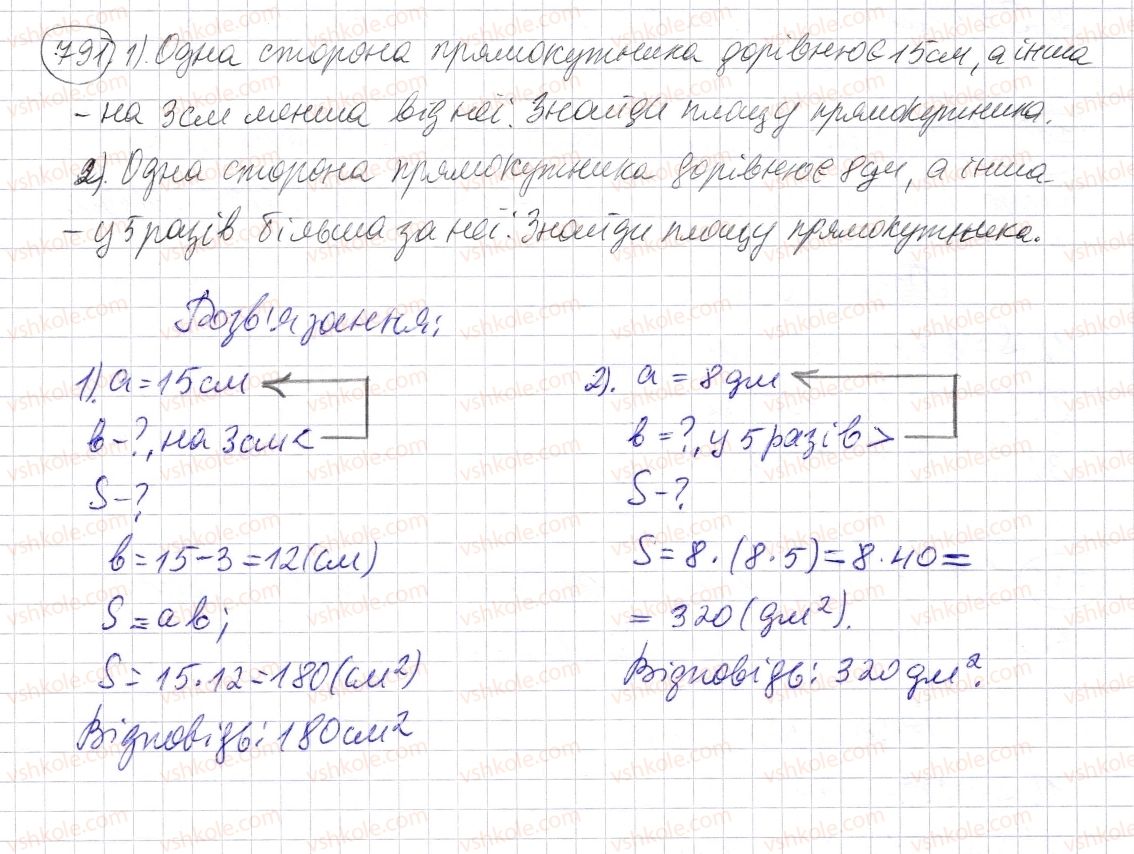 791) 1). Одна сторона прямокутника дорівнює 15см, а інша
- на 3см менша від неї. Знайди площу прямокутника.
2). Одна сторона прямокутника дорівнює 8дм, а інша
- у 5 разів більша за неї. Знайди площу прямокутника.
Розв'язання:
1). a = 15см
в - ?, на 3см <
S - ?
в = 15 - 3 = 12(см)
S = ав;
S = 15 · 12 = 180(см²)
Відповідь: 180см²
2). a = 8дм
в = ?, у 5 разів >
S - ?
S = 8 · (8 · 5) = 8 · 40 =
= 320(дм²).
Відповідь: 320дм².
vshkole.com